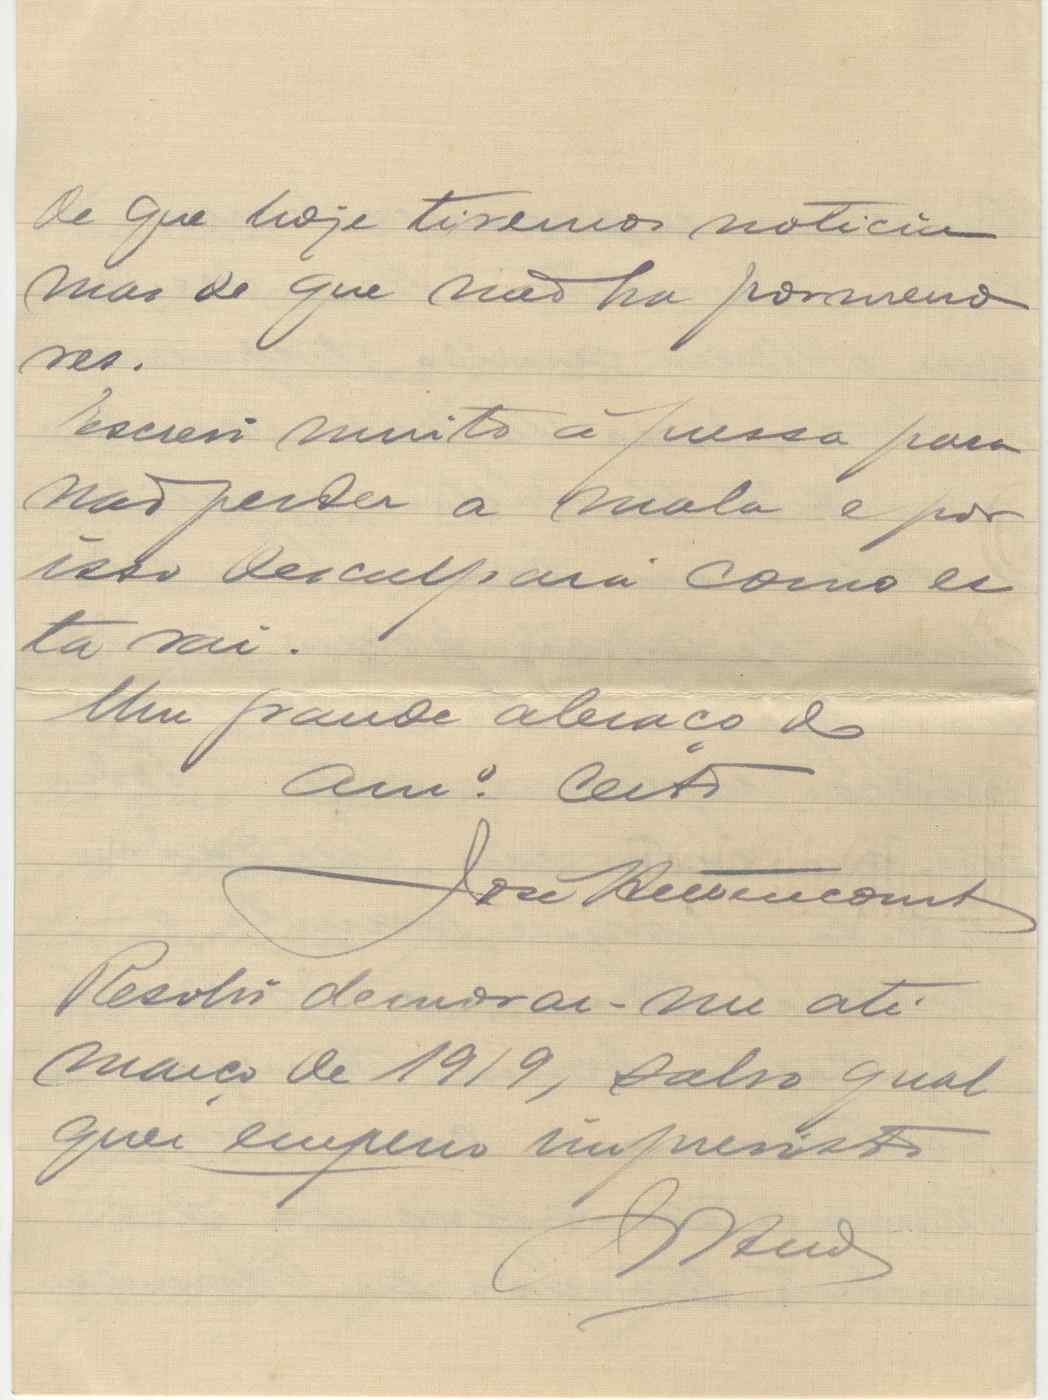 de que hoje tivemos noticia
mas de que não ha pormeno
res.
Escrevi muito á pressa para
não perder a mala e por
isso desculpará como es
ta vai.
Um grande abraço do
am.º certo
José Bettencourt
Resolvi demorar-me até
março de 1919, salvo qual
quer empeno imprevisto